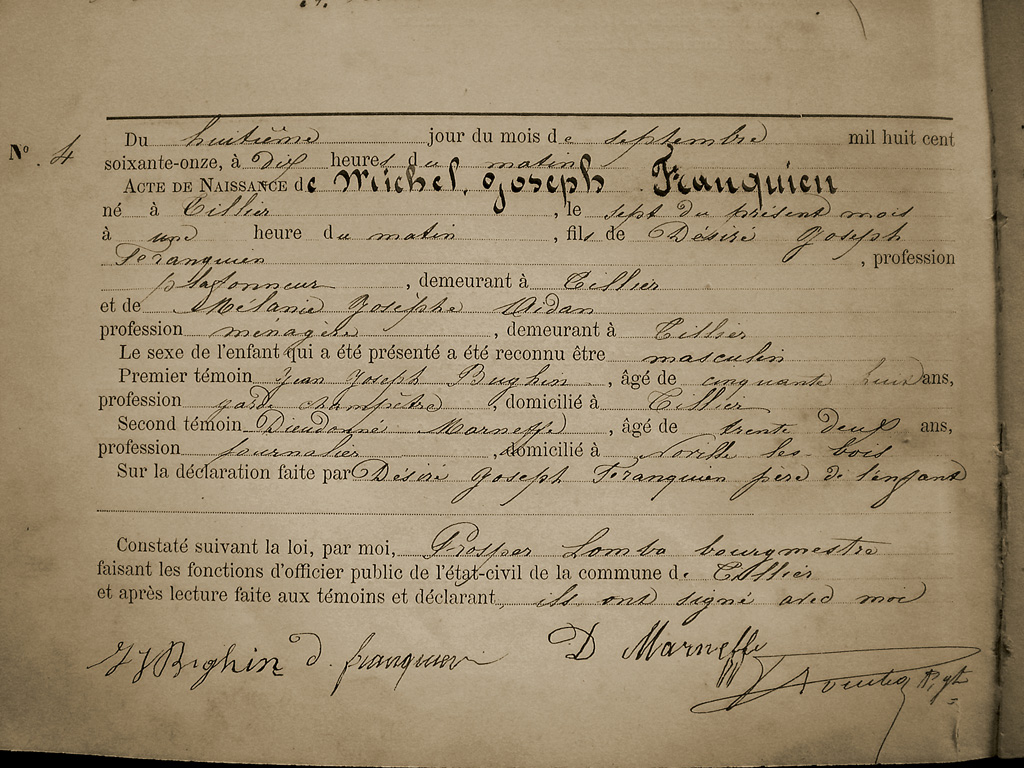 N° 4
Du huitième jour du mois de septembre mil huit cent
soixante-onze, à dix heures du matin
ACTE DE NAISSANCE de Michel, Joseph Franquien
né à Tillier, le sept du présent mois
à une heure du matin, fils de Désiré Joseph
Franquien, profession
plafonneur, demeurant à Tillier
et de Mélanie Josèphe Aidan
profession ménagère, demeurant à Tillier
Le sexe de l'enfant qui a été présenté a été reconnu être masculin
Premier témoin Jean Joseph Bughin, âgé de cinquante huit ans,
profession garde champêtre, domicilié à Tillier
Second témoin Dieudonné Marneffe, âgé de trente deux ans,
profession journalier, domicilié à Noville les bois
Sur la déclaration faite par Désiré Joseph Franquien père de l'enfant
Constaté suivant la loi, par moi, Prosper Lomba bourgmestre
faisant les fonctions d'officier public de l'état-civil de la commune de Tillier
et après lecture faite aux témoins et déclarant, ils ont signé avec moi
J J Bughin D. franquien D Marneffe